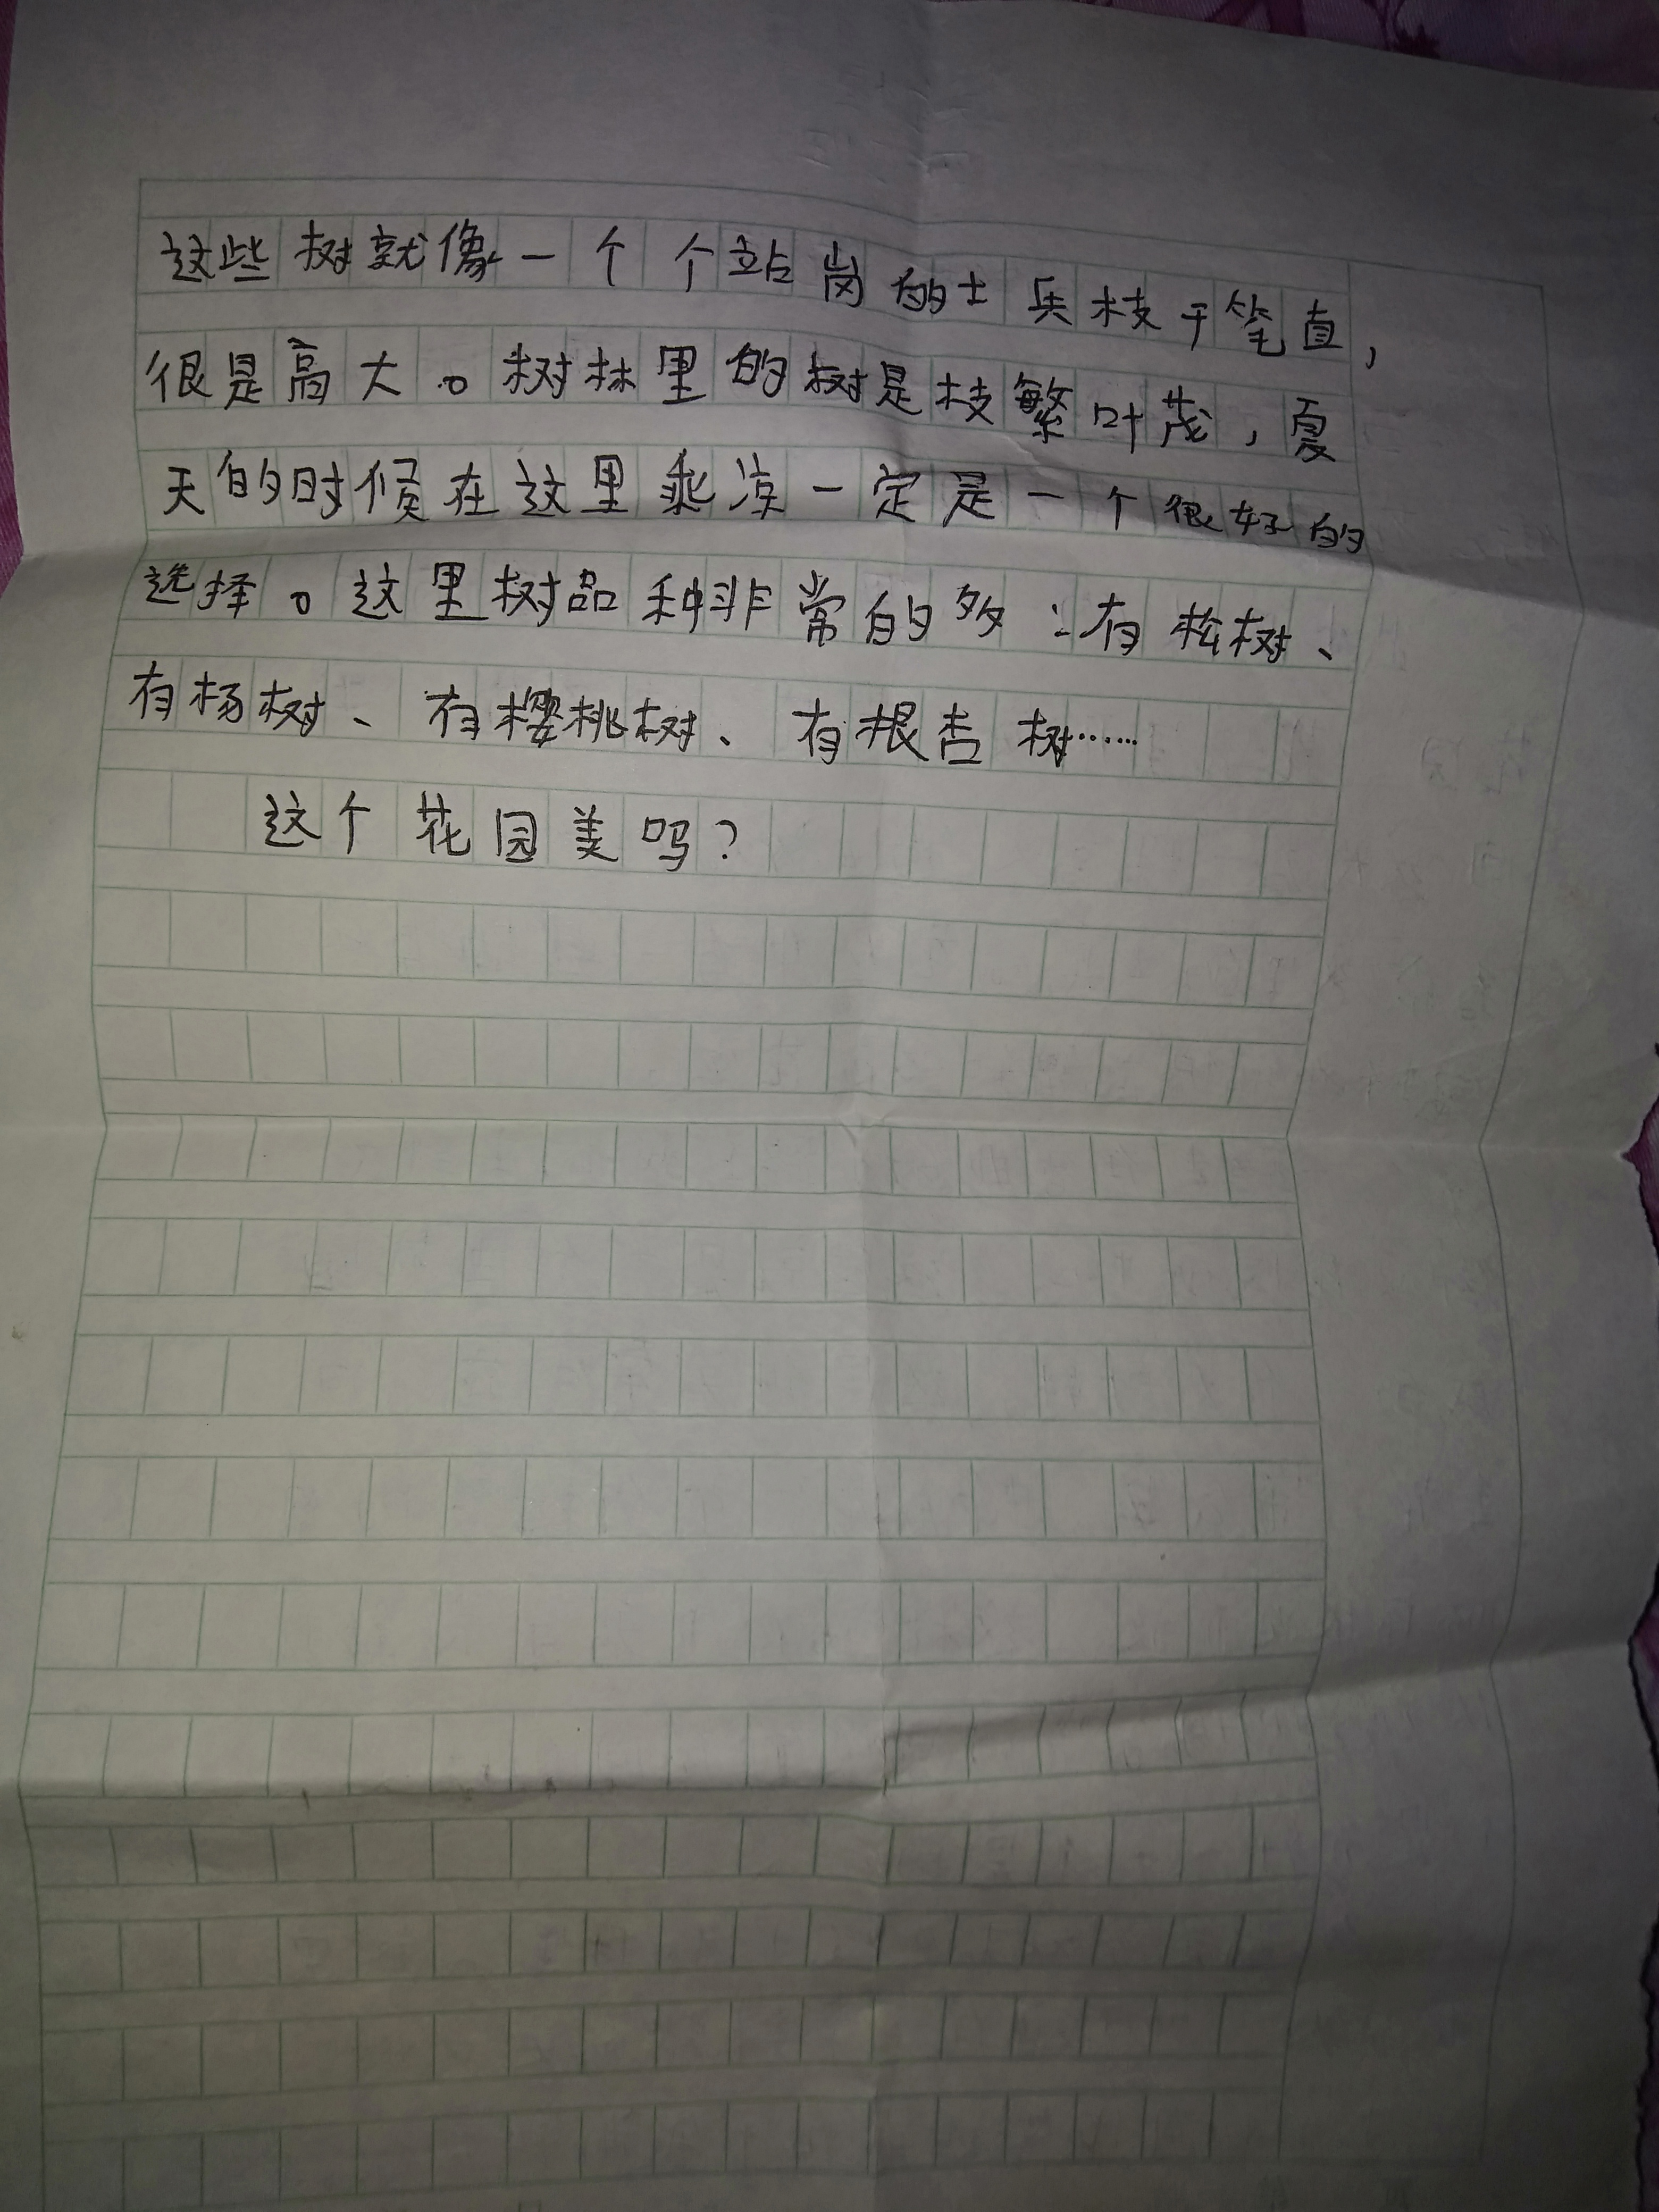 这些树就像一个个站岗的士兵枝干笔直，
很是高大。树林里的树是枝繁叶茂，夏
天的时候在这里乘凉一定是一个很好的
选择。这里树品种非常的多：有松树、
有杨树、有樱桃树、有根杏树……
这个花园美吗？